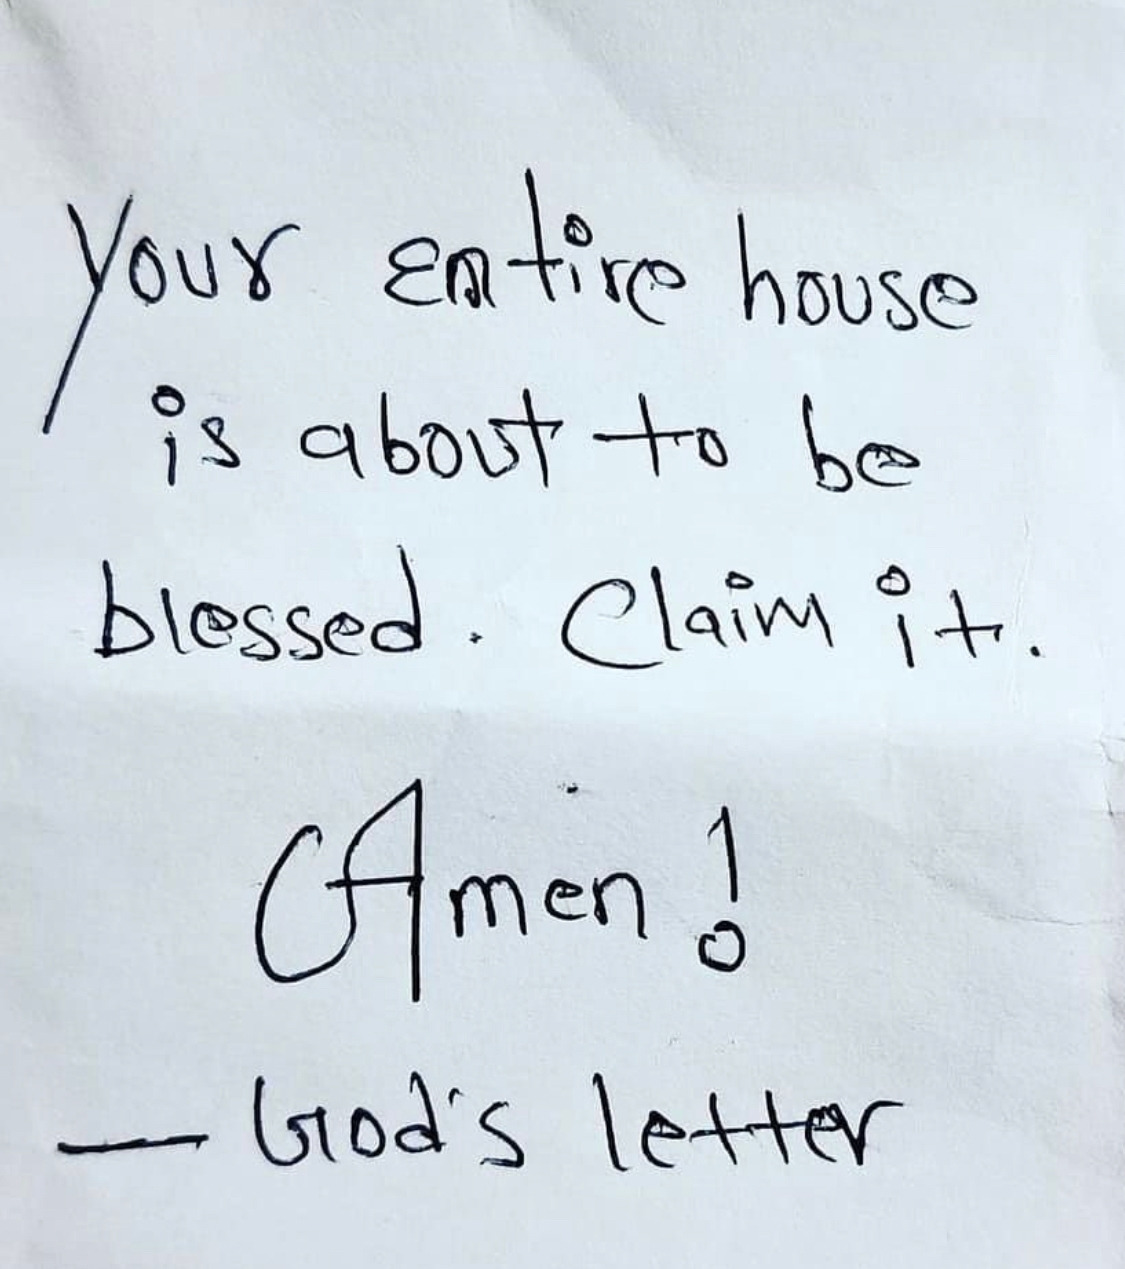 Your entire house
is about to be
blessed. Claim it.
Amen!
— God's letter